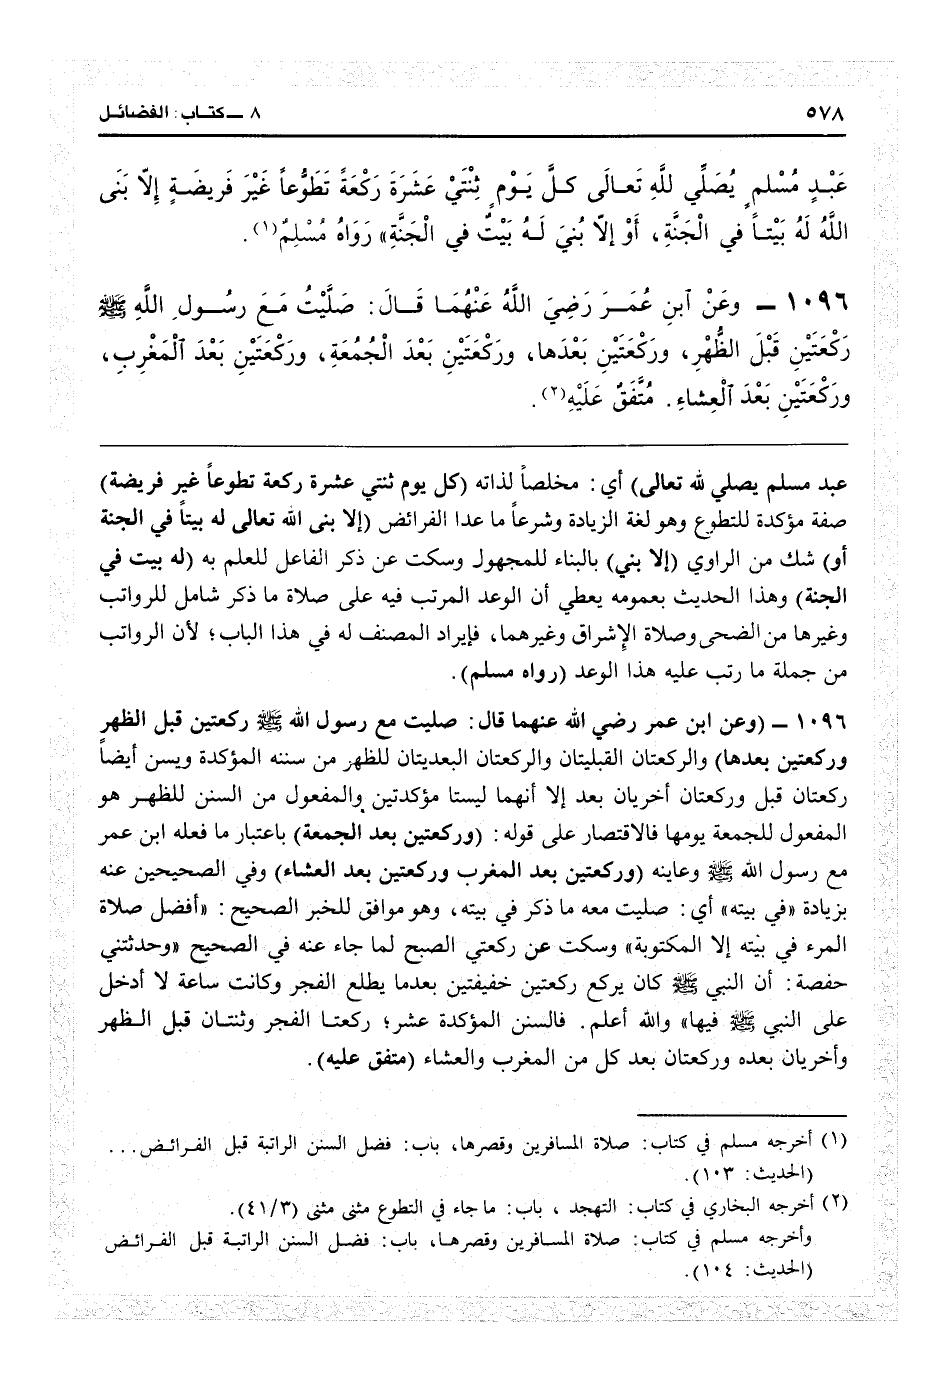 ٥٧٨
٨ ــ كتـاب: الفضائـل
عَبْـدٍ مُسْلمٍ يُصَلِّي للَّهِ تَعـالَى كـلَّ يَـوْمٍ ثِنْتَيْ عَشَرَةَ رَكْعَةً تَطَوُّعاً غَيْرَ فَريضَـةٍ إلاّ بَنَى
اللَّهُ لَهُ بَيْتـاً في الْجَنَّةِ، أَوْ إلاّ بُنيَ لَـهُ بَيْتٌ في الْجَنَّةِ» رَوَاهُ مُسْلِمٌ(١).
١٠٩٦ ــ وعَنْ ٱبنِ عُمَـرَ رَضِيَ اللَّهُ عَنْهُمَـا قَـالَ: صَلَّيْتُ مَـعَ رسُـولِ اللَّهِ ﷺ
رَكْعَتَيْنِ قَبْلَ الظُّهْرِ، ورَكْعَتَيْنِ بَعْدَها، ورَكْعَتَيْنِ بَعْدَ الْجُمُعَةِ، ورَكْعَتَيْنِ بَعْدَ ٱلْمَغْرِبِ،
ورَكْعَتَيْنِ بَعْدَ ٱلْعِشاءِ. مُتَّفَقٌ عَلَيْهِ(٢).
عبد مسلم يصلي لله تعالى) أي: مخلصاً لذاته (كل يوم ثنتي عشرة ركعة تطوعاً غير فريضة)
صفة مؤكدة للتطوع وهو لغة الزيادة وشرعاً ما عدا الفرائض (إلا بنى الله تعالى له بيتاً في الجنة
أو) شك من الراوي (إلا بني) بالبناء للمجهول وسكت عن ذكر الفاعل للعلم به (له بيت في
الجنة) وهذا الحديث بعمومه يعطي أن الوعد المرتب فيه على صلاة ما ذكر شامل للرواتب
وغيرها من الضحى وصلاة الإشراق وغيرهما، فإيراد المصنف له في هذا الباب؛ لأن الرواتب
من جملة ما رتب عليه هذا الوعد (رواه مسلم).
١٠٩٦ ــ (وعن ابن عمر رضي الله عنهما قال: صليت مع رسول الله ﷺ ركعتين قبل الظهر
وركعتين بعدها) والركعتان القبليتان والركعتان البعديتان للظهر من سننه المؤكدة ويسن أيضاً
ركعتان قبل وركعتان أخريان بعد إلا أنهما ليستا مؤكدتين والمفعول من السنن للظهـر هو
المفعول للجمعة يومها فالاقتصار على قوله: (وركعتين بعد الجمعة) باعتبار ما فعله ابن عمر
مع رسول الله ﷺ وعاينه (وركعتين بعد المغرب وركعتين بعد العشاء) وفي الصحيحين عنه
بزيادة «في بيته» أي: صليت معه ما ذكر في بيته، وهو موافق للخبر الصحيح: «أفضل صلاة
المرء في بيته إلا المكتوبة» وسكت عن ركعتي الصبح لما جاء عنه في الصحيح «وحدثتني
حفصة: أن النبي ﷺ كان يركع ركعتين خفيفتين بعدما يطلع الفجر وكانت ساعة لا أدخل
على النبي ﷺ فيها» والله أعلم. فالسنن المؤكدة عشر؛ ركعتـا الفجر وثنتـان قبل الـظهر
وأخريان بعده وركعتان بعد كل من المغرب والعشاء (متفق عليه).
(١) أخرجه مسلم في كتاب: صلاة المسافرين وقصرها، باب: فضل السنن الراتبة قبل الفـرائـض...
(الحديث: ١٠٣).
(٢) أخرجه البخاري في كتاب: التهجد ، باب: ما جاء في التطوع مثنى مثنى (٤١/٣).
وأخرجه مسلم في كتاب: صلاة المسافرين وقصرهـا، باب: فضـل السنن الراتبـة قبل الفـرائض
(الحديث: ١٠٤).